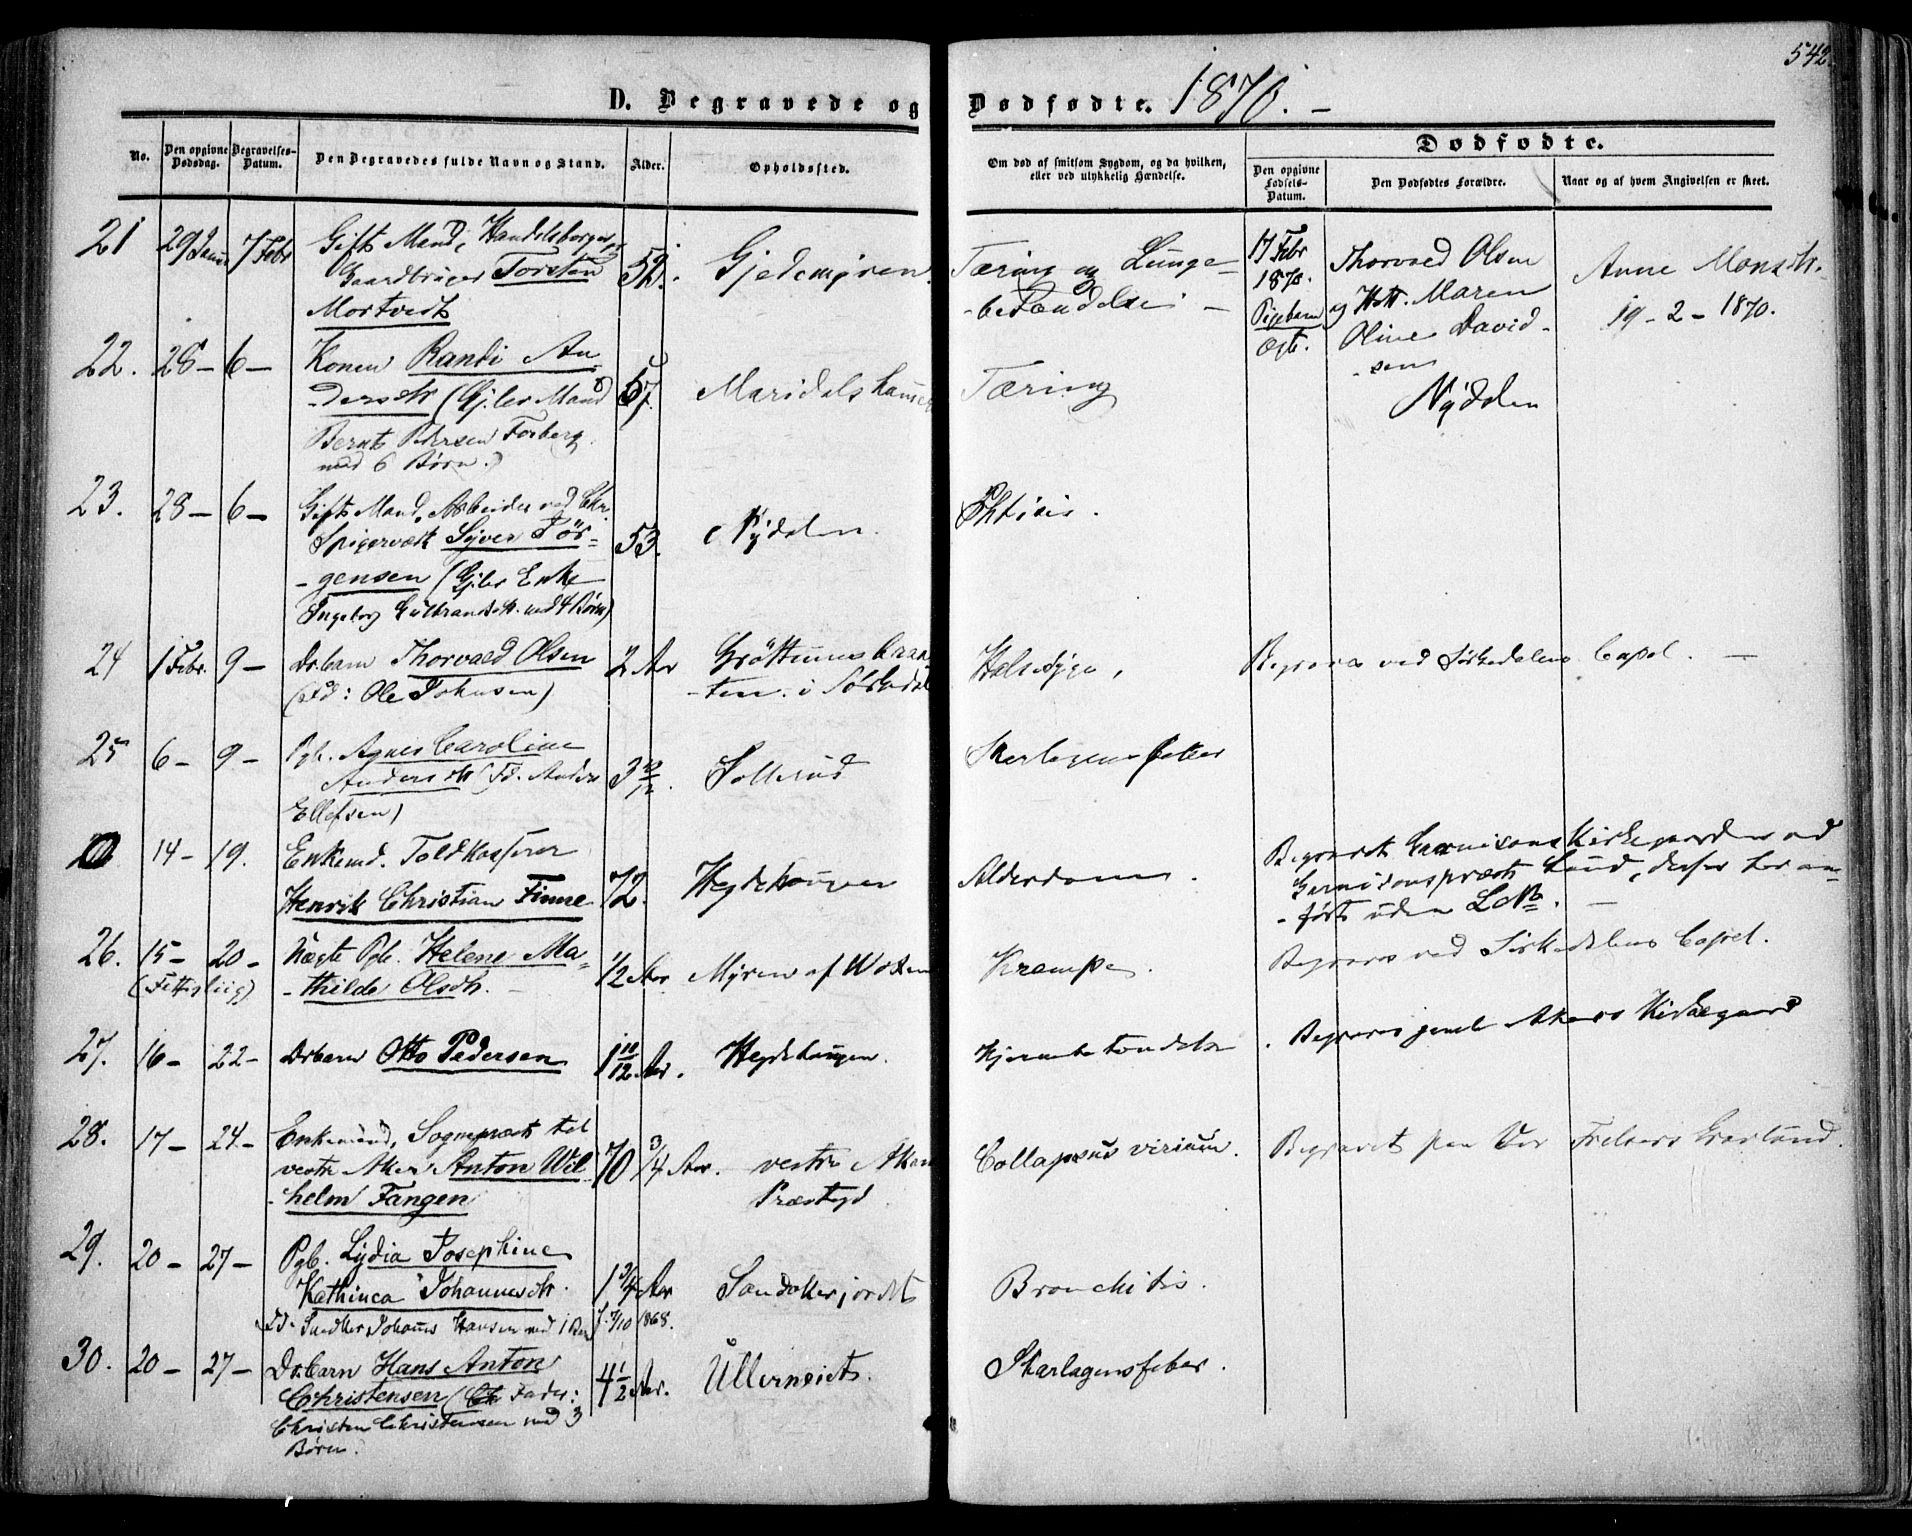 542
D. Begravede og Dødfødte. 1870. –
No.
Den opgivne Dødsdag.
Begravelses-Datum.
Den Begravedes fulde Navn og Stand.
Alder.
Opholdssted.
Om død af smitsom Sygdom, og da hvilken,
eller ved ulykkelig Hændelse.
Dødfødte.
Den opgivne Fødsels-Datum.
Den Dødfødtes Forældre.
Naar og af hvem Angivelsen er skeet.
21 29 Janr 7 Febr Gift Mand, Handelsborger og
Gaardbruger Torsten
Mortvedt
52. Gjedemyren. Tæring og Lunge-
-betændelse. –
17 Febr
1870.
Pigebarn
Ægte.
Thorvald Olsen
og Hst. Maren
Oline David-
-sen
Nydalen
Anne Monsdtr.
19 – 2 – 1870.
22. 28 – 6 – Konen Randi An-
-dersdtr (Gjlev Mand
Bernt Petersen Forberg
med 6 Børn.)
57. Maridalshammeren Tæring
23. 28 – 6 – Gift Mand, Arbeider ved Chr.
Spigerværk Syver Jør-
-gensen (Gjlev Enke
Ingeborg Gulbrandsdtr. med 4 Børn)
53. Nydalen. Phtisis.
24 1 Febr. 9 – Drbarn Thorvald Olsen
(Fd: Ole Johnsen)
2 Aar Grøttumsbraa-
-ten i Sørkedal Halssyge, Begraves ved Sørkedalens Capel. –
25 6 – 9 – Pgb. Agnes Caroline
Andersdtr (Fd. Anders
Ellefsen)
3 10/12. Sollerud Skarlagensfeber
14 – 19. Enkemd. Toldkasserer
Henrik Christian Finne
72. Hegdehaugen Alderdom.
Begravet Garnisons Kirkegaarden ved
Garnisonspræst Lund, derfor her an-
-ført uden L No. –
26. 15 – 20 – Uægte Pgb. Helene Ma-
-thilde Olsdtr. –
1/2 Aar Myren af Voxen Krampe. Begraves ved Sørkedalens Capel.
27. 16 – 22 – Drbarn Otto Pedersen 1 11/12 Aar. Hegdehaugen. Hjernebetændelse. Begraves gamle Akers Kirkegaard
28. 17 – 24 – Enkemand, Sognepræst til
vestre Aker Anton Wil-
-helm Fangen
70 3/4 Aar. vestre Aker
Præstegd. Collapsus virium. Begravet paa Vor Frelsers Gravlund.
29. 20 – 27 – Pgb. Lydia Josephine
Kathinca Johannesdtr.
Fd. Snedker Johannes Hansen med 1 Barn
1 3/4 Aar
f. 7/10 1868.
Sandakerjordet Bronchitis.
30. 20 – 27 – Drbarn Hans Anton
Christensen (Fader:
Christen Christensen med 3
Børn.
4 1/2 Aar. Ullerneiet. Skarlagensfeber.